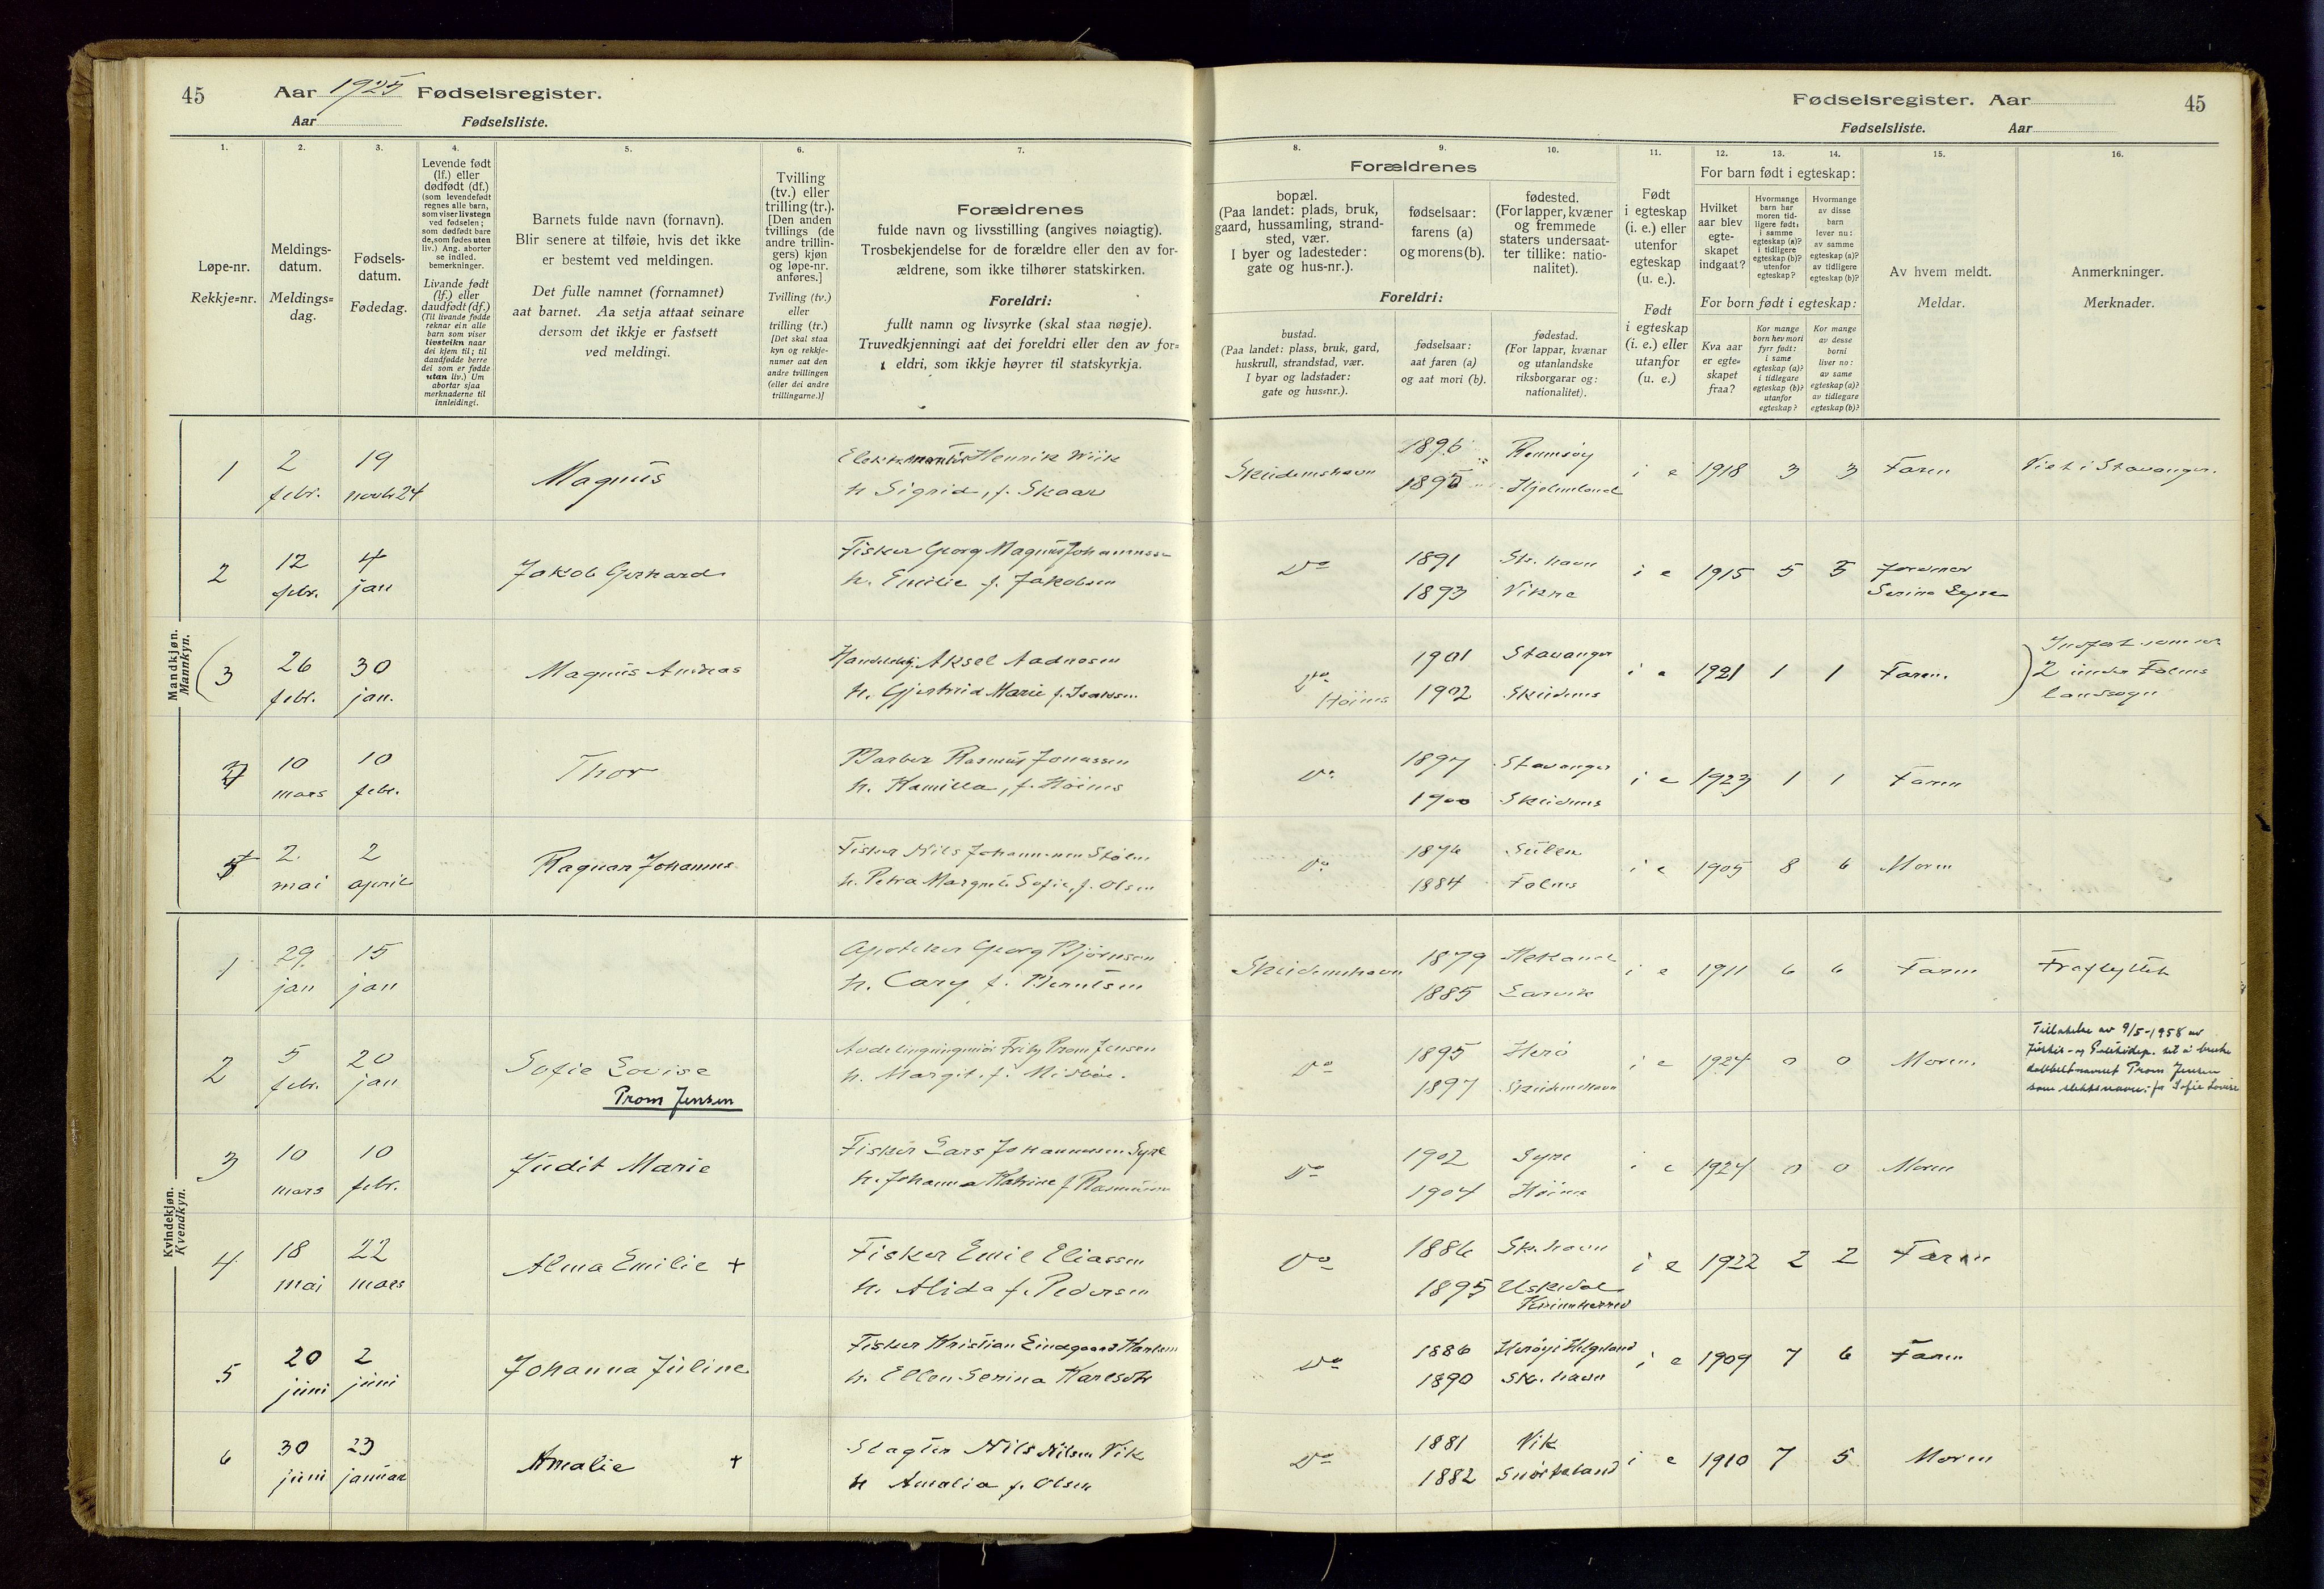 45
Aar 1925 Fødselsregister.
Aar Fødselsliste.
1. 2. 3. 4. 5. 6. 7.
Løpe-nr.
Rekkje-nr.
Meldings-
datum.
Meldings-
dag.
Fødsels-
datum.
Fødedag.
Levende født
(lf.) eller
dødfødt (df.)
(som levendefødt
regnes alle barn,
som viser livstegn
ved fødselen;
som dødfødt bare
de, som fødes uten
liv.) Ang. aborter
se indled.
bemerkninger.
Livande født
(lf.) eller
daudfødt (df.)
(Til livande fødde
reknar ein alle
barn som viser
livsteikn naar
dei kjem til; til
daudfødde berre
dei som er fødde
utan liv.) Um
abortar sjaa
merknaderne til
innleidingi.
Barnets fulde navn (fornavn).
Blir senere at tilføie, hvis det ikke
er bestemt ved meldingen.
Det fulle namnet (fornamnet)
aat barnet. Aa setja attaat seinare
dersom det ikkje er fastsett
ved meldingi.
Tvilling
(tv.) eller
trilling (tr.).
[Den anden
tvillings (de
andre trillin-
gers) kjøn
og løpe-nr.
anføres.]
Tvilling (tv.)
eller
trilling (tr.)
[Det skal staa
kyn og rekkje-
numer aat den
andre tvillingen
(eller dei andre
trillingarne.)]
Forældrenes
fulde navn og livsstilling (angives nøiagtig).
Trosbekjendelse for de forældre eller den av for-
ældrene, som ikke tilhører statskirken.
Foreldri:
fullt namn og livsyrke (skal staa nøgje).
Truvedkjenningi aat dei foreldri eller den av for-
eldri, som ikkje høyrer til statskyrkja.
Mandkjøn.
Mannkyn.
1 2 febr. 19 novbr 24 Magnus
Elektr.montør Henrik Wiik
h Sigrid, f. Skaar
2 12 febr. 4 jan Jakob Gerhard
Fisker Georg Magnus Johannessen
h. Emilie f. Jakobsen
3 26 febr. 30 jan. Magnus Andreas
Aksel Aadnesen
h. Gjertrud Marie f. Isaksen
10 mars 10 febr. Thor
Barber Rasmus Jonassen
h. Kamilla, f. Høines
2 mai 2 april Ragnar Johannes
Fisker Nils Johannesen Stølen
h. Petra Margrete Sofie, f. Olsen
Kvindekjøn.
Kvendkyn.
1 29 jan 15 jan
Apoteker Georg Bjørnsen
h. Cary f. Berntsen
2 5 febr. 20 jan Sofie Lovise
Prom Jensen
Fritz Prom Jensen
h. Margit, f. Midbøe.
3 10 mars 10 febr. Judit Marie
Fisker Lars Johannessen Syre
h. Johanna Katrine f Rasmussen
4 18 mai 22 mars Alma Emilie +
Fisker Emil Eliassen
h. Alida f. Pedersen
5 20 juni 2 juni Johanna Juline
Fisker Kristian Eindgaard Karlsen
h. Ellen Serina Karlsen
6 30 juni 23 januar Amalie +
Slagter Nils Nilsen Vik
h Amalia f. Olsen
Fødselsregister. Aar 45
Fødselsliste. Aar
8. 9. 10. 11. 12. 13. 14. 15. 16.
Forældrenes
bopæl.
(Paa landet: plads, bruk,
gaard, hussamling, strand-
sted, vær.
I byer og ladesteder:
gate og hus-nr.).
fødselsaar:
farens (a)
og morens (b).
fødested.
(For lapper, kvæner
og fremmede
staters undersaat-
ter tillike: natio-
nalitet).
Foreldri:
bustad.
(Paa landet: plass, bruk, gard,
huskrull, strandstad, vær.
I byar og ladstader:
gate og hus-nr.).
fødselsaar:
aat faren (a)
og aat mori (b).
fødestad.
(For lappar, kvænar
og utanlandske
riksborgarar og:
nationalitet).
Født
i egteskap
(i. e.) eller
utenfor
egteskap
(u. e.).
Født
i egteskap
(i. e.) eller
utanfor
(u. e.)
For barn født i egteskap:
Hvilket
aar blev
egte-
skapet
indgaat?
Hvormange
barn har
moren tid-
ligere født:
i samme
egteskap (a)?
i tidligere
egteskap (b)?
utenfor
egteskap?
Hvormange
av disse
barn
lever nu:
av samme
egteskap (a)?
av tidligere
egteskap (b)?
For born født i egteskap:
Kva aar
er egte-
skapet
fraa?
Kor mange
born hev mori
fyrr født:
i same
egteskap (a)?
i tidlegare
egteskap (b)?
utanfor
egteskap?
Kor mange
av desse
borni
liver no:
av same
egteskap (a)?
av tidlegare
egteskap (b)?
Av hvem meldt.
Meldar.
Anmerkninger.
Merknader.
Skudenshavn 1896 Rennesøy i e 1918 3 3 Faren Viet i Stavanger.
1895 Hjelmeland
Do 1891 Sk. havn i e 1915 5 5 Jordmor
1893 Vikne Serine Syre
Do 1901 Stavanger i e 1921 1 1 Faren.
Høines 1902 Skudenes
Indført som nr.
2 under Falnes
landsogn
Do 1897 Stavanger i e 1923 1 1 Faren
1900 Skudenes
Do 1876 Sulen i e 1905 8 6 Moren
1884 Falnes
Skudenshavn 1879 i e 1911 6 6 Faren Fraflyttet
1885 Larvik
Do 1895 Herø i e 1924 0 0 Moren.
1897 Skudenshavn
Tillatelse av 9/5-1958 av
Justis- og Politidep. til å bruke
dobbeltnavnet Prom Jensen
som slektsnavn for Sofie Lovise
Do 1902 Syre i e 1924 0 0 Moren
1904 Høines
Do 1886 Sk.havn i e 1922 2 2 Faren
1895 Uskedal
Kvinnherred
Do 1886 Herøy i Helgeland i e 1909 7 6 Faren
1890 Sk. havn
Do 1881 Vik i e 1910 7 5 Moren
1882 Snørteland